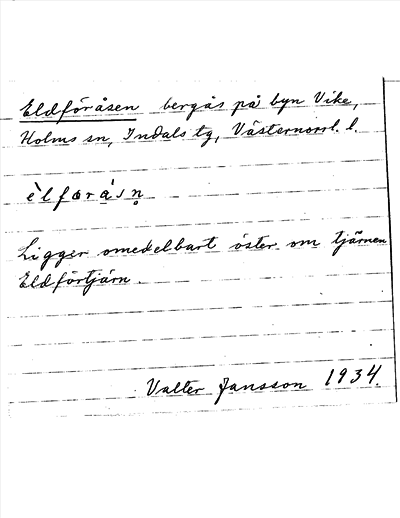 Eldföråsen bergås på byn Vike,
Holms sn, Indals tg, Västernorrl. l.
èlforåsn̥
Ligger omedelbart öster om tjärnen
Eldförtjärn.
Valter Jansson 1934.